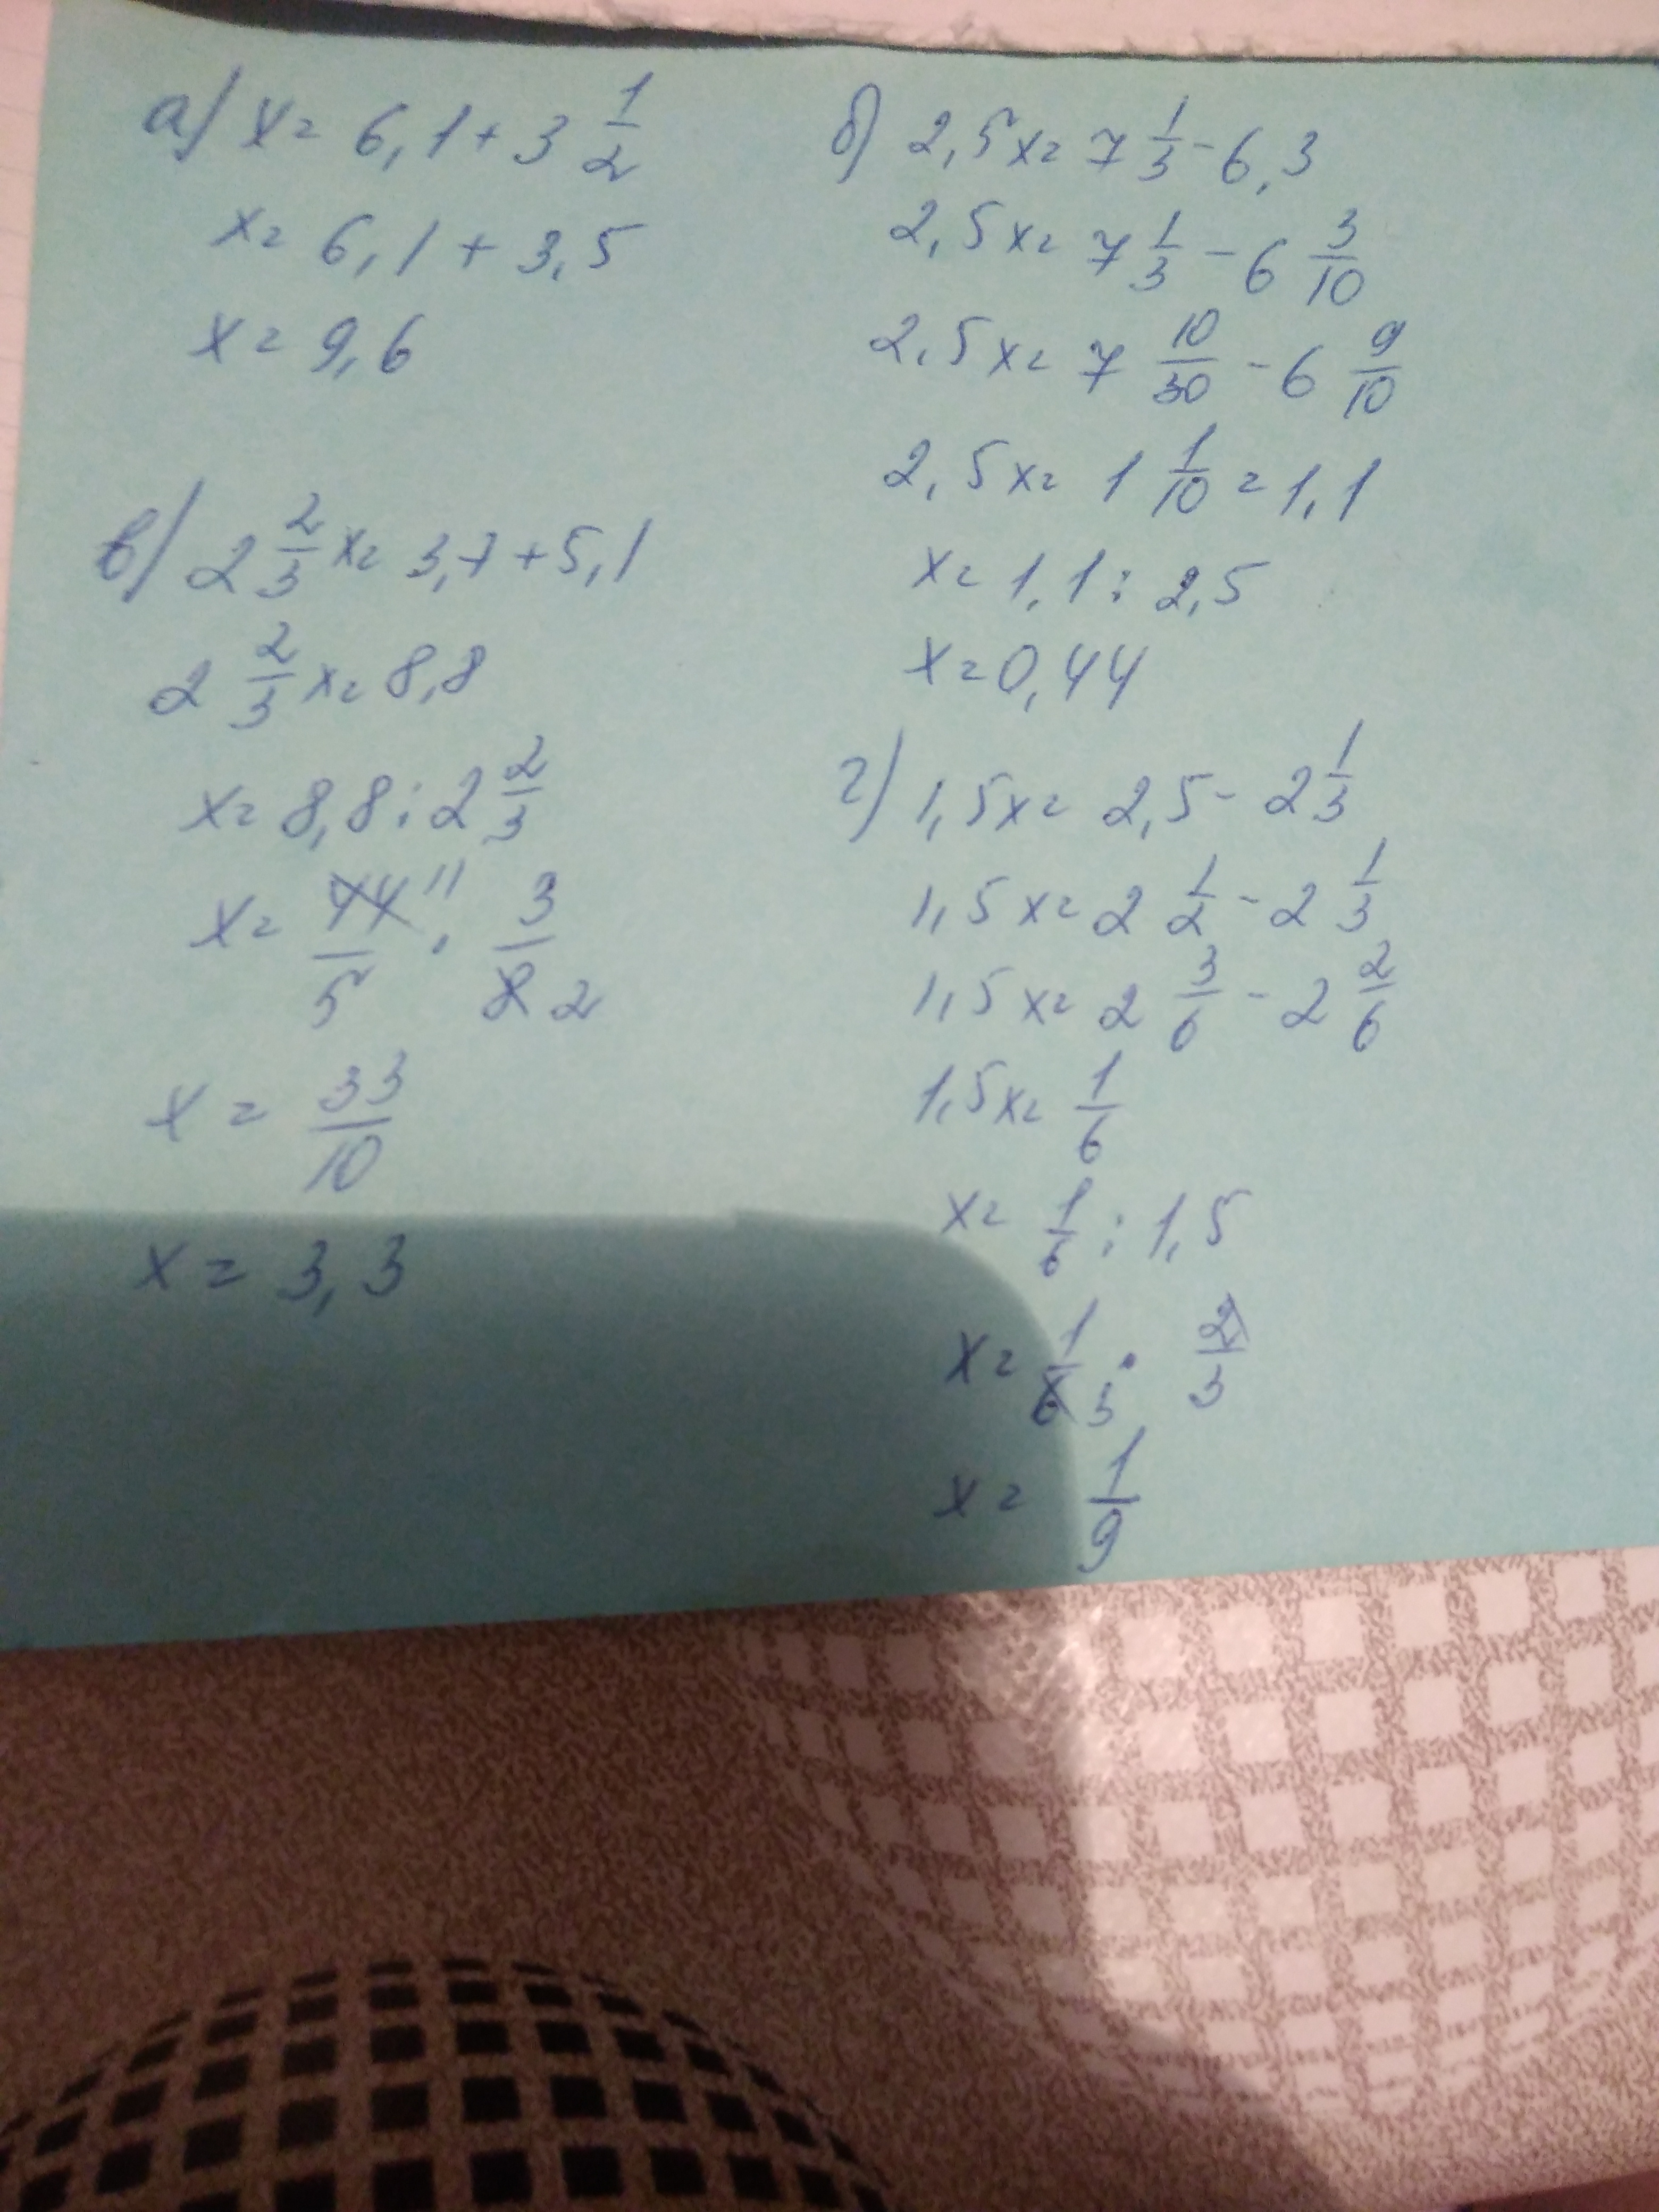 а) x = 6,1 + 3 1/2
x = 6,1 + 3,5
x = 9,6
б) 2,5x = 7 1/3 - 6,3
2,5x = 7 1/3 - 6 3/10
2,5x = 7 10/30 - 6 9/10
2,5x = 1 1/10 = 1,1
x = 1,1 : 2,5
x = 0,44
в) 2 2/3 x = 3,7 + 5,1
2 2/3 x = 8,8
x = 8,8 : 2 2/3
x = 44 11/5 · 3/8 2
x = 33/10
x = 3,3
г) 1,5x = 2,5 - 2 1/3
1,5x = 2 1/2 - 2 1/3
1,5x = 2 3/6 - 2 2/6
1,5x = 1/6
x = 1/6 : 1,5
x = 1/6 3 · 2/3
x = 1/9